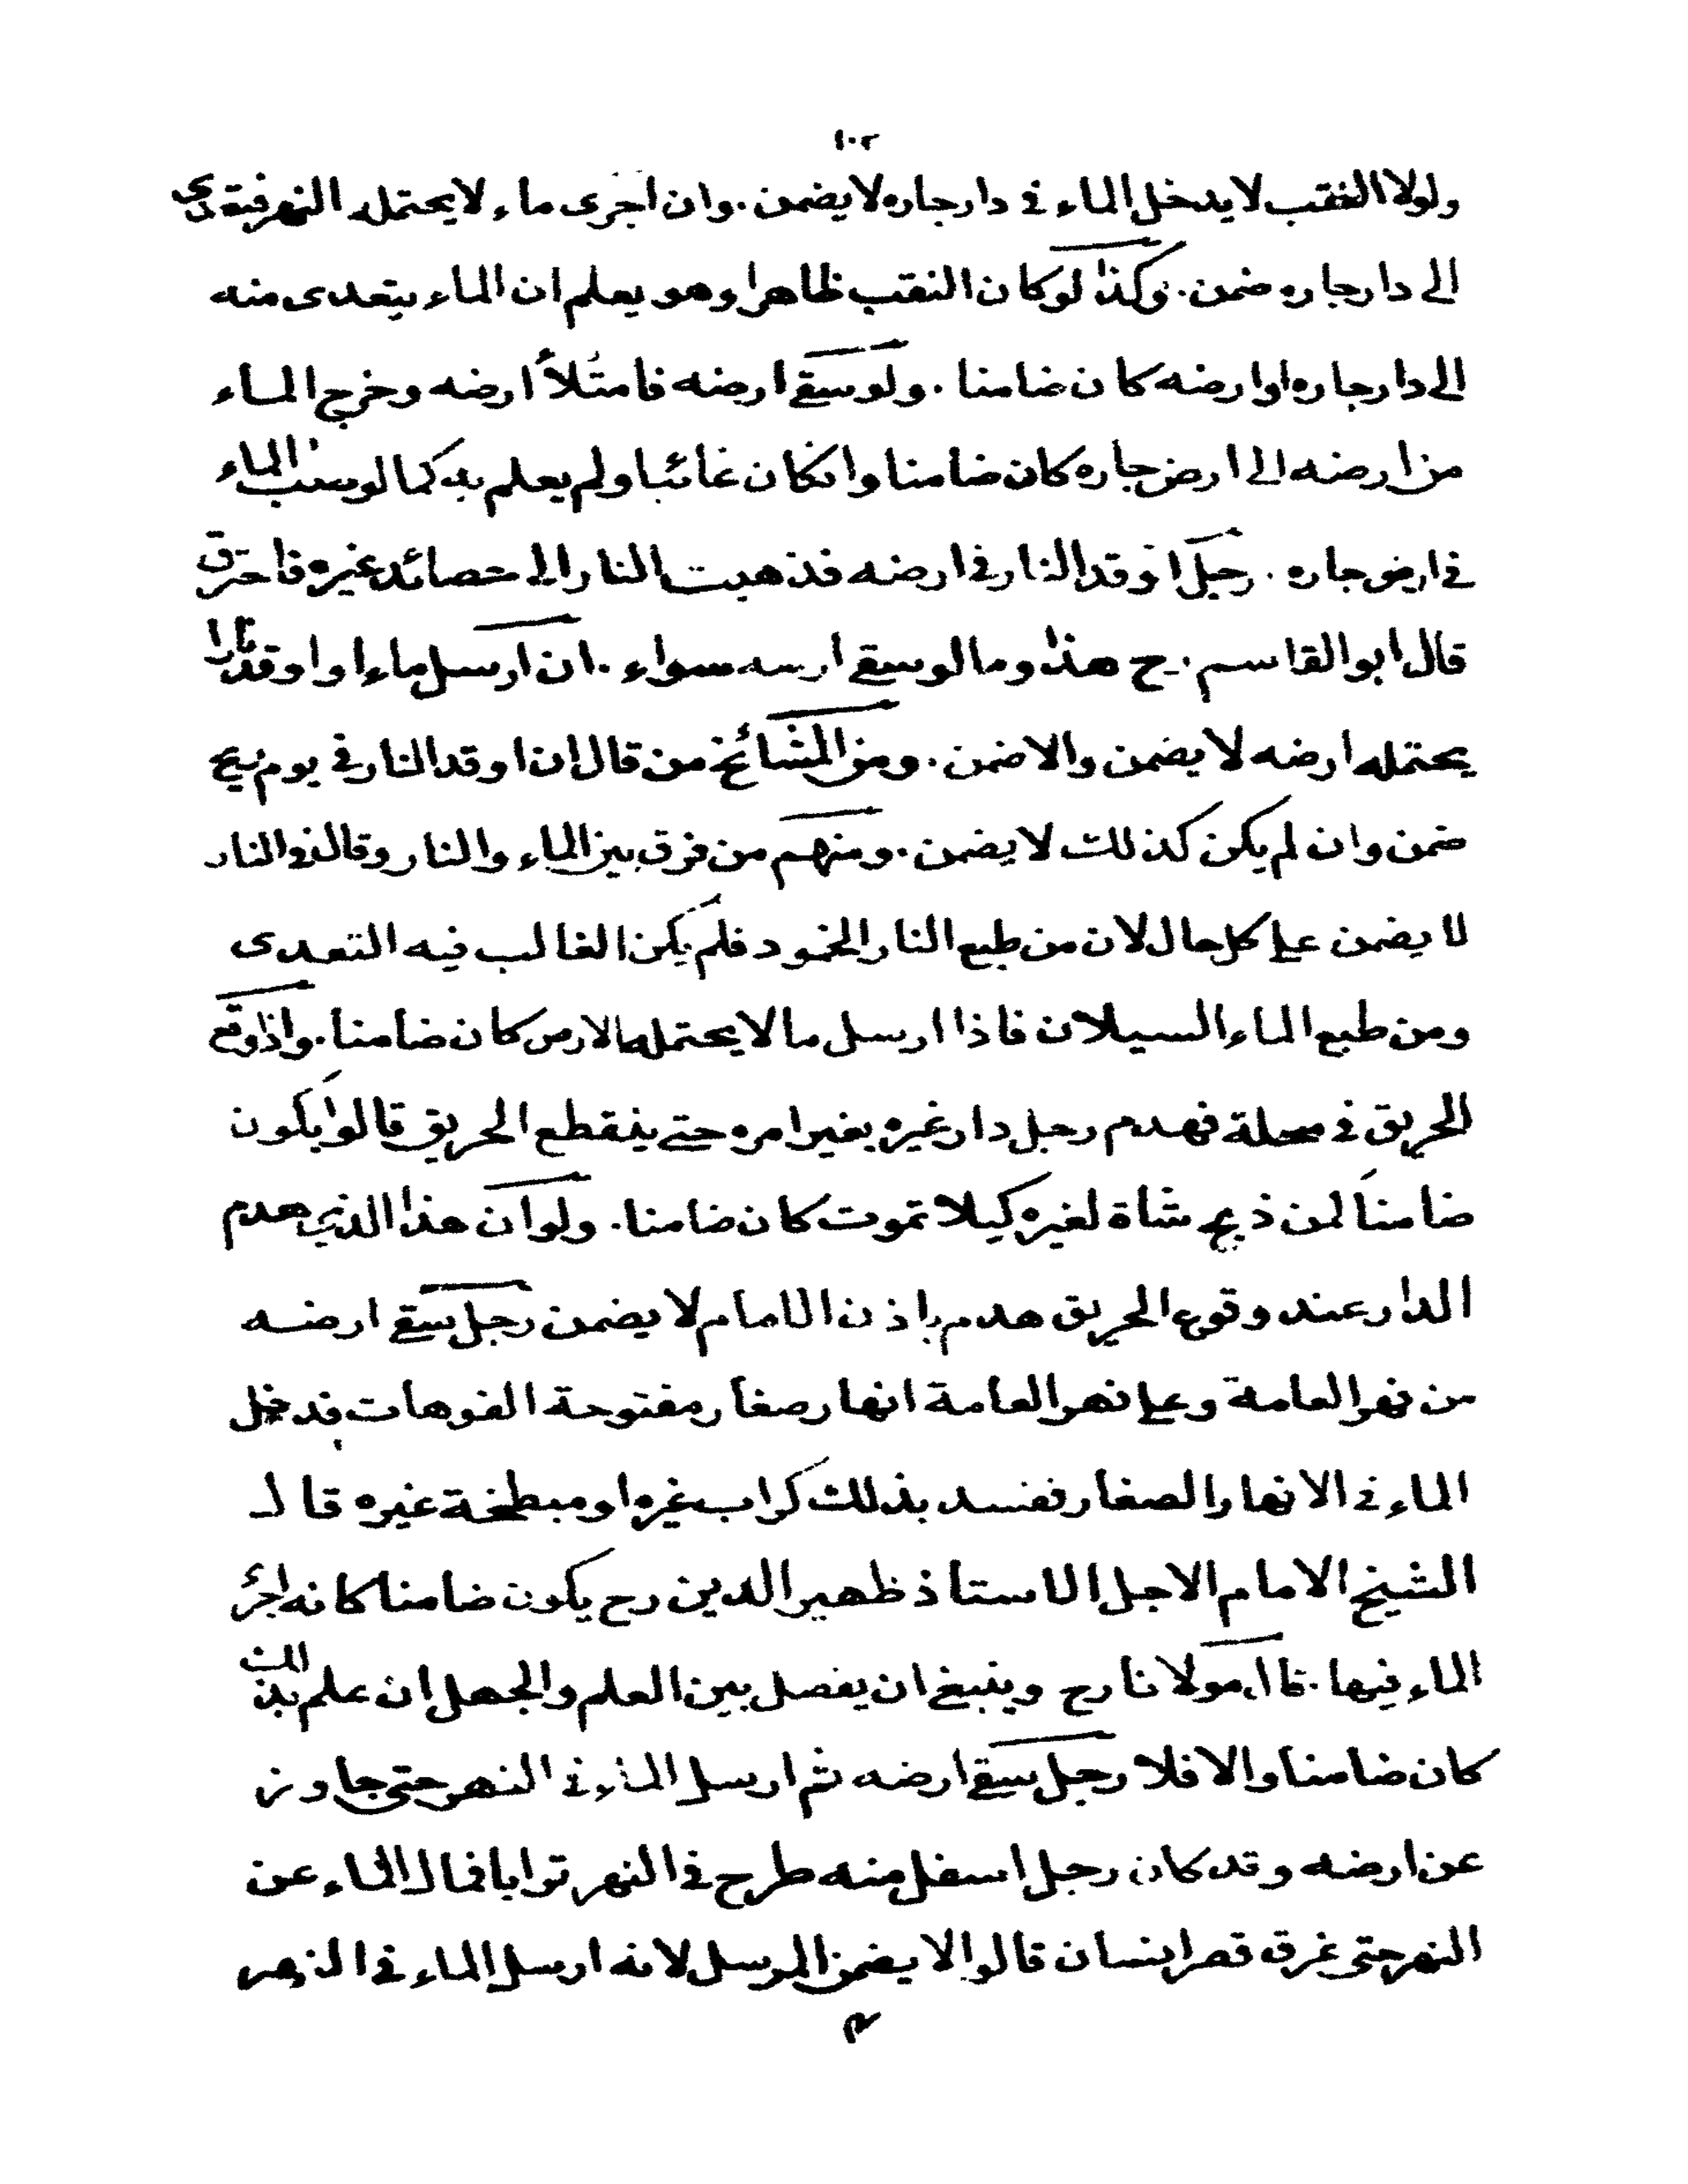 ١٠٢
ولولا النقب لا يدخل الماء في دار جاره لا يضمن . وان اجرى ماء لا يحتمله النهر فيتعدى
الى دار جاره ضمن . وكذا لو كان النقب ظاهرا وهو يعلم ان الماء يتعدى منه
الى دار جاره او ارضه كان ضامنا . ولو سقى ارضه فامتلأ ارضه وخرج الماء
من ارضه الى ارض جاره كان ضامنا وانكان غائبا ولم يعلم به كما لو صب الماء
في ارض جاره . رجل اوقد النار في ارضه فذهبت النار الى حصائد غيره فاحترق
قال ابو القاسم . ح هذا وما لو سقى ارسه سواء . ان ارسل ماء او اوقد نارا
يحتمله ارضه لا يضمن والا ضمن . ومن المشائخ من قال ان اوقد النار في يوم ريح
ضمن وان لم يكن كذلك لا يضمن . ومنهم من فرق بين الماء والنار وقال في النار
لا يضمن على كل حال لان من طبع النار الخمود فلم يكن الغالب فيه التعدى
ومن طبع الماء السيلان فاذا ارسل ما لا يحتمله الارض كان ضامنا . واذا وقع
الحريق في محلة فهدم رجل دار غيره بغير امره حتى ينقطع الحريق قالوا يكون
ضامنا لمن ذبح شاة لغيره كيلا تموت كان ضامنا . ولو ان هذا الذي هدم
الدار عند وقوع الحريق هدم باذن الامام لا يضمن رجل سقى ارضه
من نهر العامة وعلى نهر العامة انهار صغار مفتوحة الفوهات فدخل
الماء في الانهار الصغار ففسد بذلك كراب غيره او مبطخة غيره قال
الشيخ الامام الاجل الاستاذ ظهير الدين رح يكون ضامنا كانه اجرى
الماء فيها . قال مولانا رح وينبغي ان يفصل بين العلم والجهل ان علم بذلك
كان ضامنا والا فلا رجل سقى ارضه ثم ارسل الماء في النهر حتى جاوز
عن ارضه وقد كان رجل اسفل منه طرح في النهر ترابا فمال الماء عن
النهر حتى غرق قصر انسان قالوا لا يضمن المرسل لانه ارسل الماء في النهر